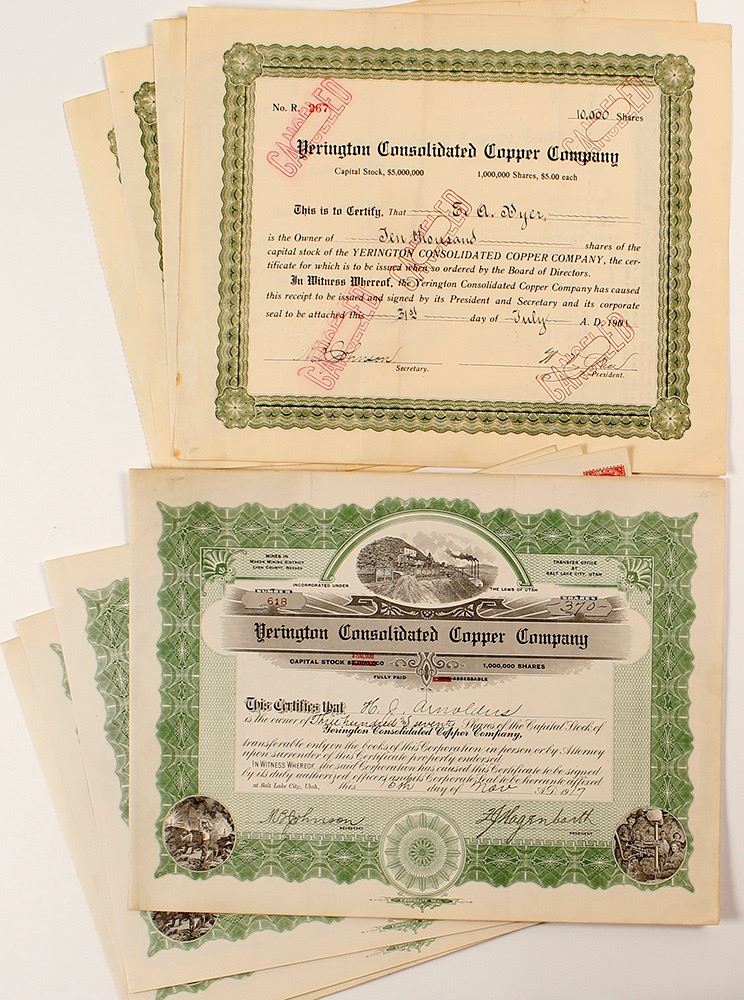 No. R. 267
10,000 Shares
CANCELLED
CANCELLED
Yerington Consolidated Copper Company
Capital Stock, $5,000,000 1,000,000 Shares, $5.00 each
CANCELLED
This is to Certify, That A. Dyer,
is the Owner of Ten thousand shares of the
capital stock of the YERINGTON CONSOLIDATED COPPER COMPANY, the cer-
tificate for which is to be issued when so ordered by the Board of Directors.
In Witness Whereof, the Yerington Consolidated Copper Company has caused
this receipt to be issued and signed by its President and Secretary and its corporate
seal to be attached this 31st day of July A. D. 190
CANCELLED
CANCELLED
Secretary. President.
15
MINES IN
MASON MINING DISTRICT
LYON COUNTY, NEVADA
TRANSFER OFFICE
AT
SALT LAKE CITY, UTAH
INCORPORATED UNDER THE LAWS OF UTAH
NUMBER
618
SHARES
370
Yerington Consolidated Copper Company
CAPITAL STOCK $ 1,000,000 SHARES
FULLY PAID ASSESSABLE
This Certifies that H. J. Arnoldus
is the owner of Three hundred & seventy Shares of the Capital Stock of
Yerington Consolidated Copper Company,
transferable only on the books of this Corporation in person or by Attorney
upon surrender of this Certificate properly endorsed.
IN WITNESS WHEREOF, the said Corporation has caused this Certificate to be signed
by its duly authorized officers and its Corporate Seal to be hereunto affixed
at Salt Lake City, Utah, this day of Nov A.D. 1917
M R Johnson
SECRETARY
Hagenbarth
PRESIDENT